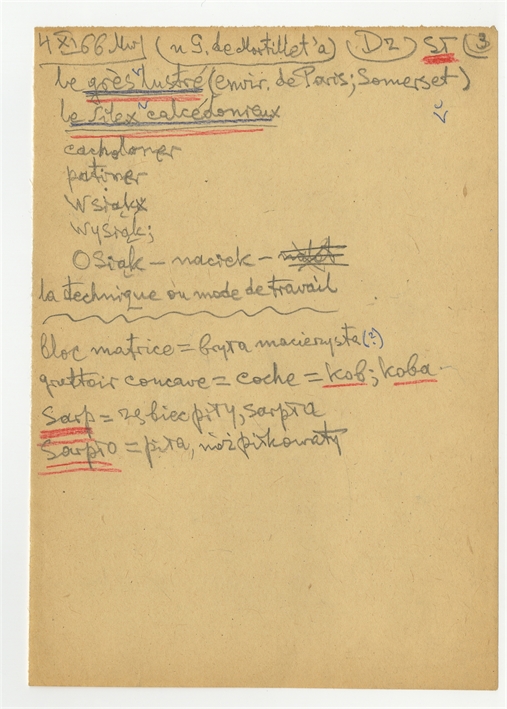 4 XI 66 Mvl (u G. de Mortillet'a) (D2) ST (3)
le grès lustré (envir. de Paris; Somerset)
le Silex calcédonieux
cacholoner
patiner
Wsiąkx
wysiąk;
Osiąk – naciek –
la technique ou mode de travail
bloc matrice = bryła macierzysta (?)
grattoir concave = coche = kob; koba
Sarp = ząbiec piły, sarpła
Sarpło = piła, nóż piłkowaty